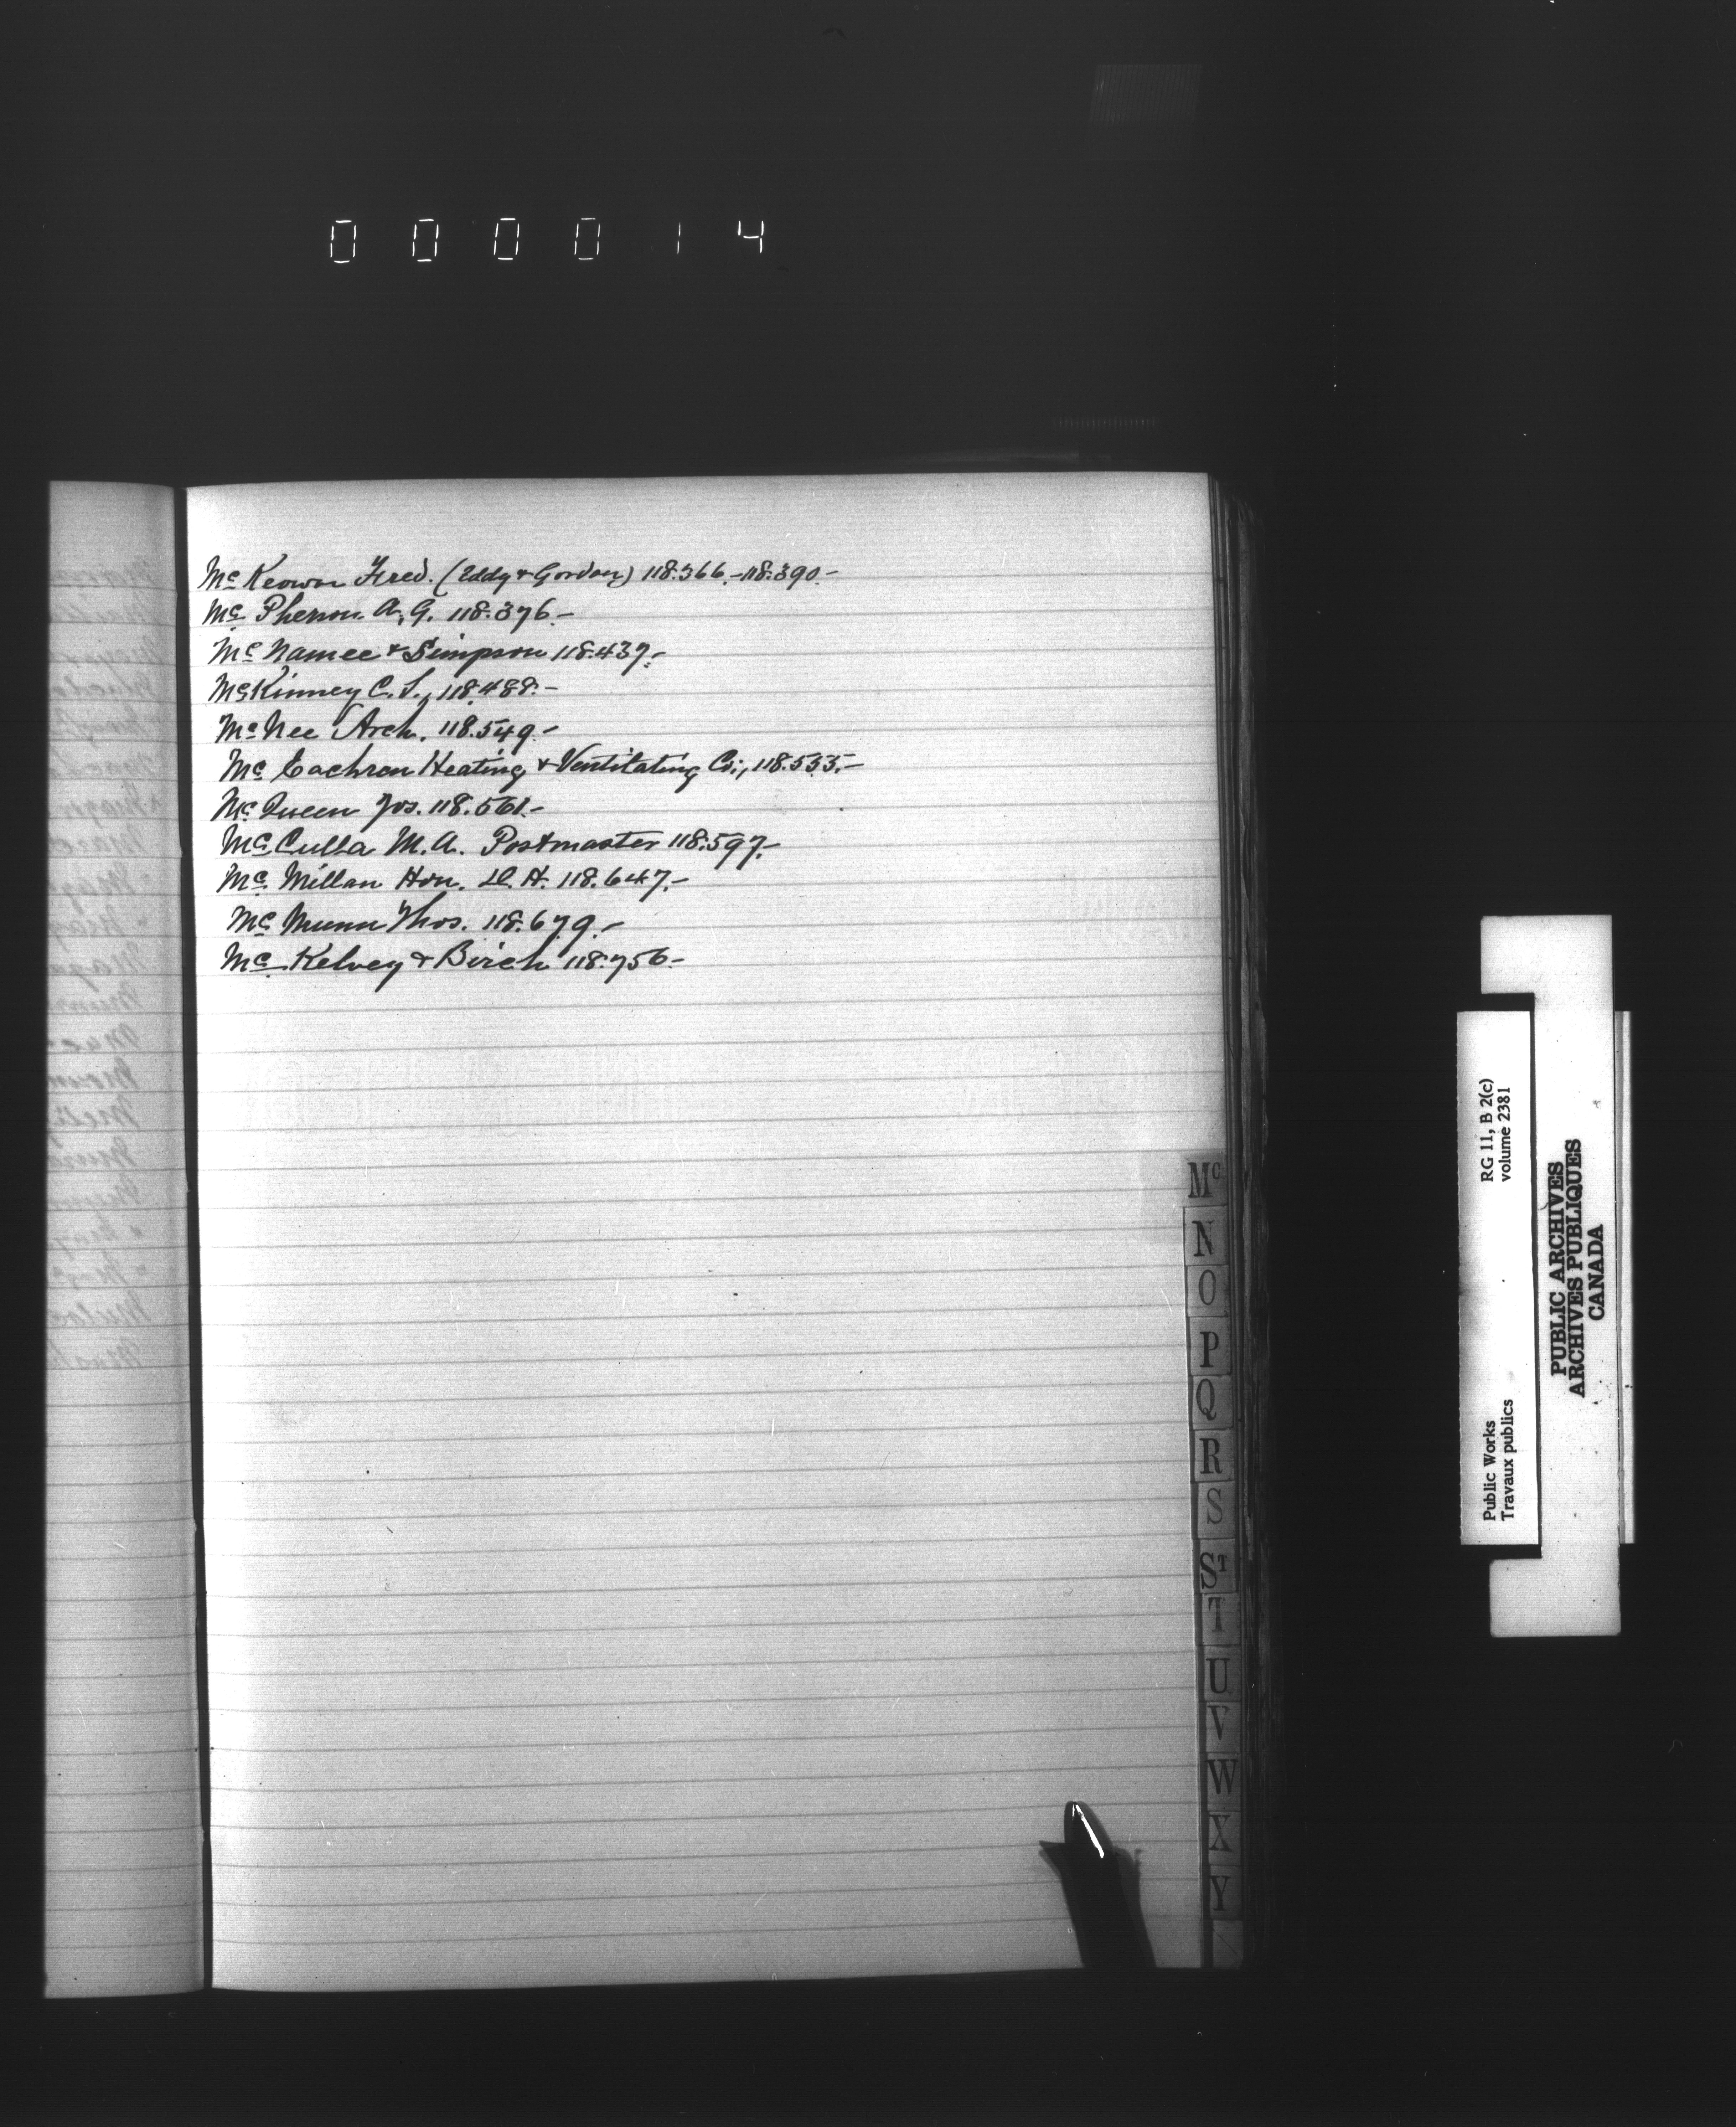 000014
Mc Keown Fred. (Eddy & Gordon) 118.366.-118.390.-
Mc Pherson A. G. 118.376.-
Mc Namee & Simpson 118.437.-
McKinney C. S., 118.488.-
McNee Arch. 118.549.-
Mc Eachren Heating & Ventilating Co., 118.555.-
Mc Queen Jos. 118.561.-
Mc Culla M. A. Postmaster 118.597.-
Mc Millan Hon. D. H. 118.647.-
Mc Munn Thos. 118.679.-
Mc Kelvey & Birch 118.756-
Mc
N
O
P
Q
R
S
ST
T
U
V
W
X
Y
Public Works
Travaux publics
RG 11, B 2(c)
volume 2381
PUBLIC ARCHIVES
ARCHIVES PUBLIQUES
CANADA